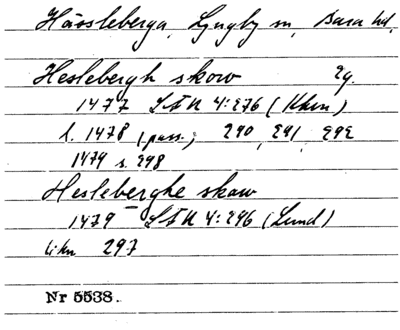 Hässleberga, Ljngby sn, Bara hd,
Heslebergh skow 2g.
1477 LÄU 4:276 (Khvn)
l. 1478 (pass.) 290, 291, 292
1479 s. 298
Hesleberghe skaw
1479 LÄU 4:296 (Lund)
likn 297
Nr 5538.